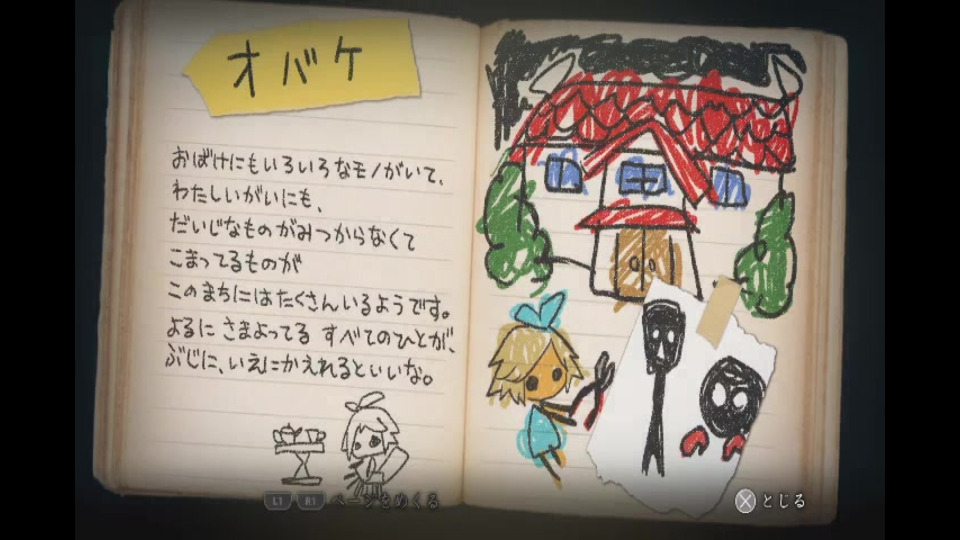 オバケ
おばけにもいろいろなモノがいて、
わたしいがいにも、
だいじなものがみつからなくて
こまってるものが
このまちにはたくさんいるようです。
よるに さまよってる すべてのひとが、
ぶじに、いえにかえれるといいな。
L1 R1 ページをめくる
とじる